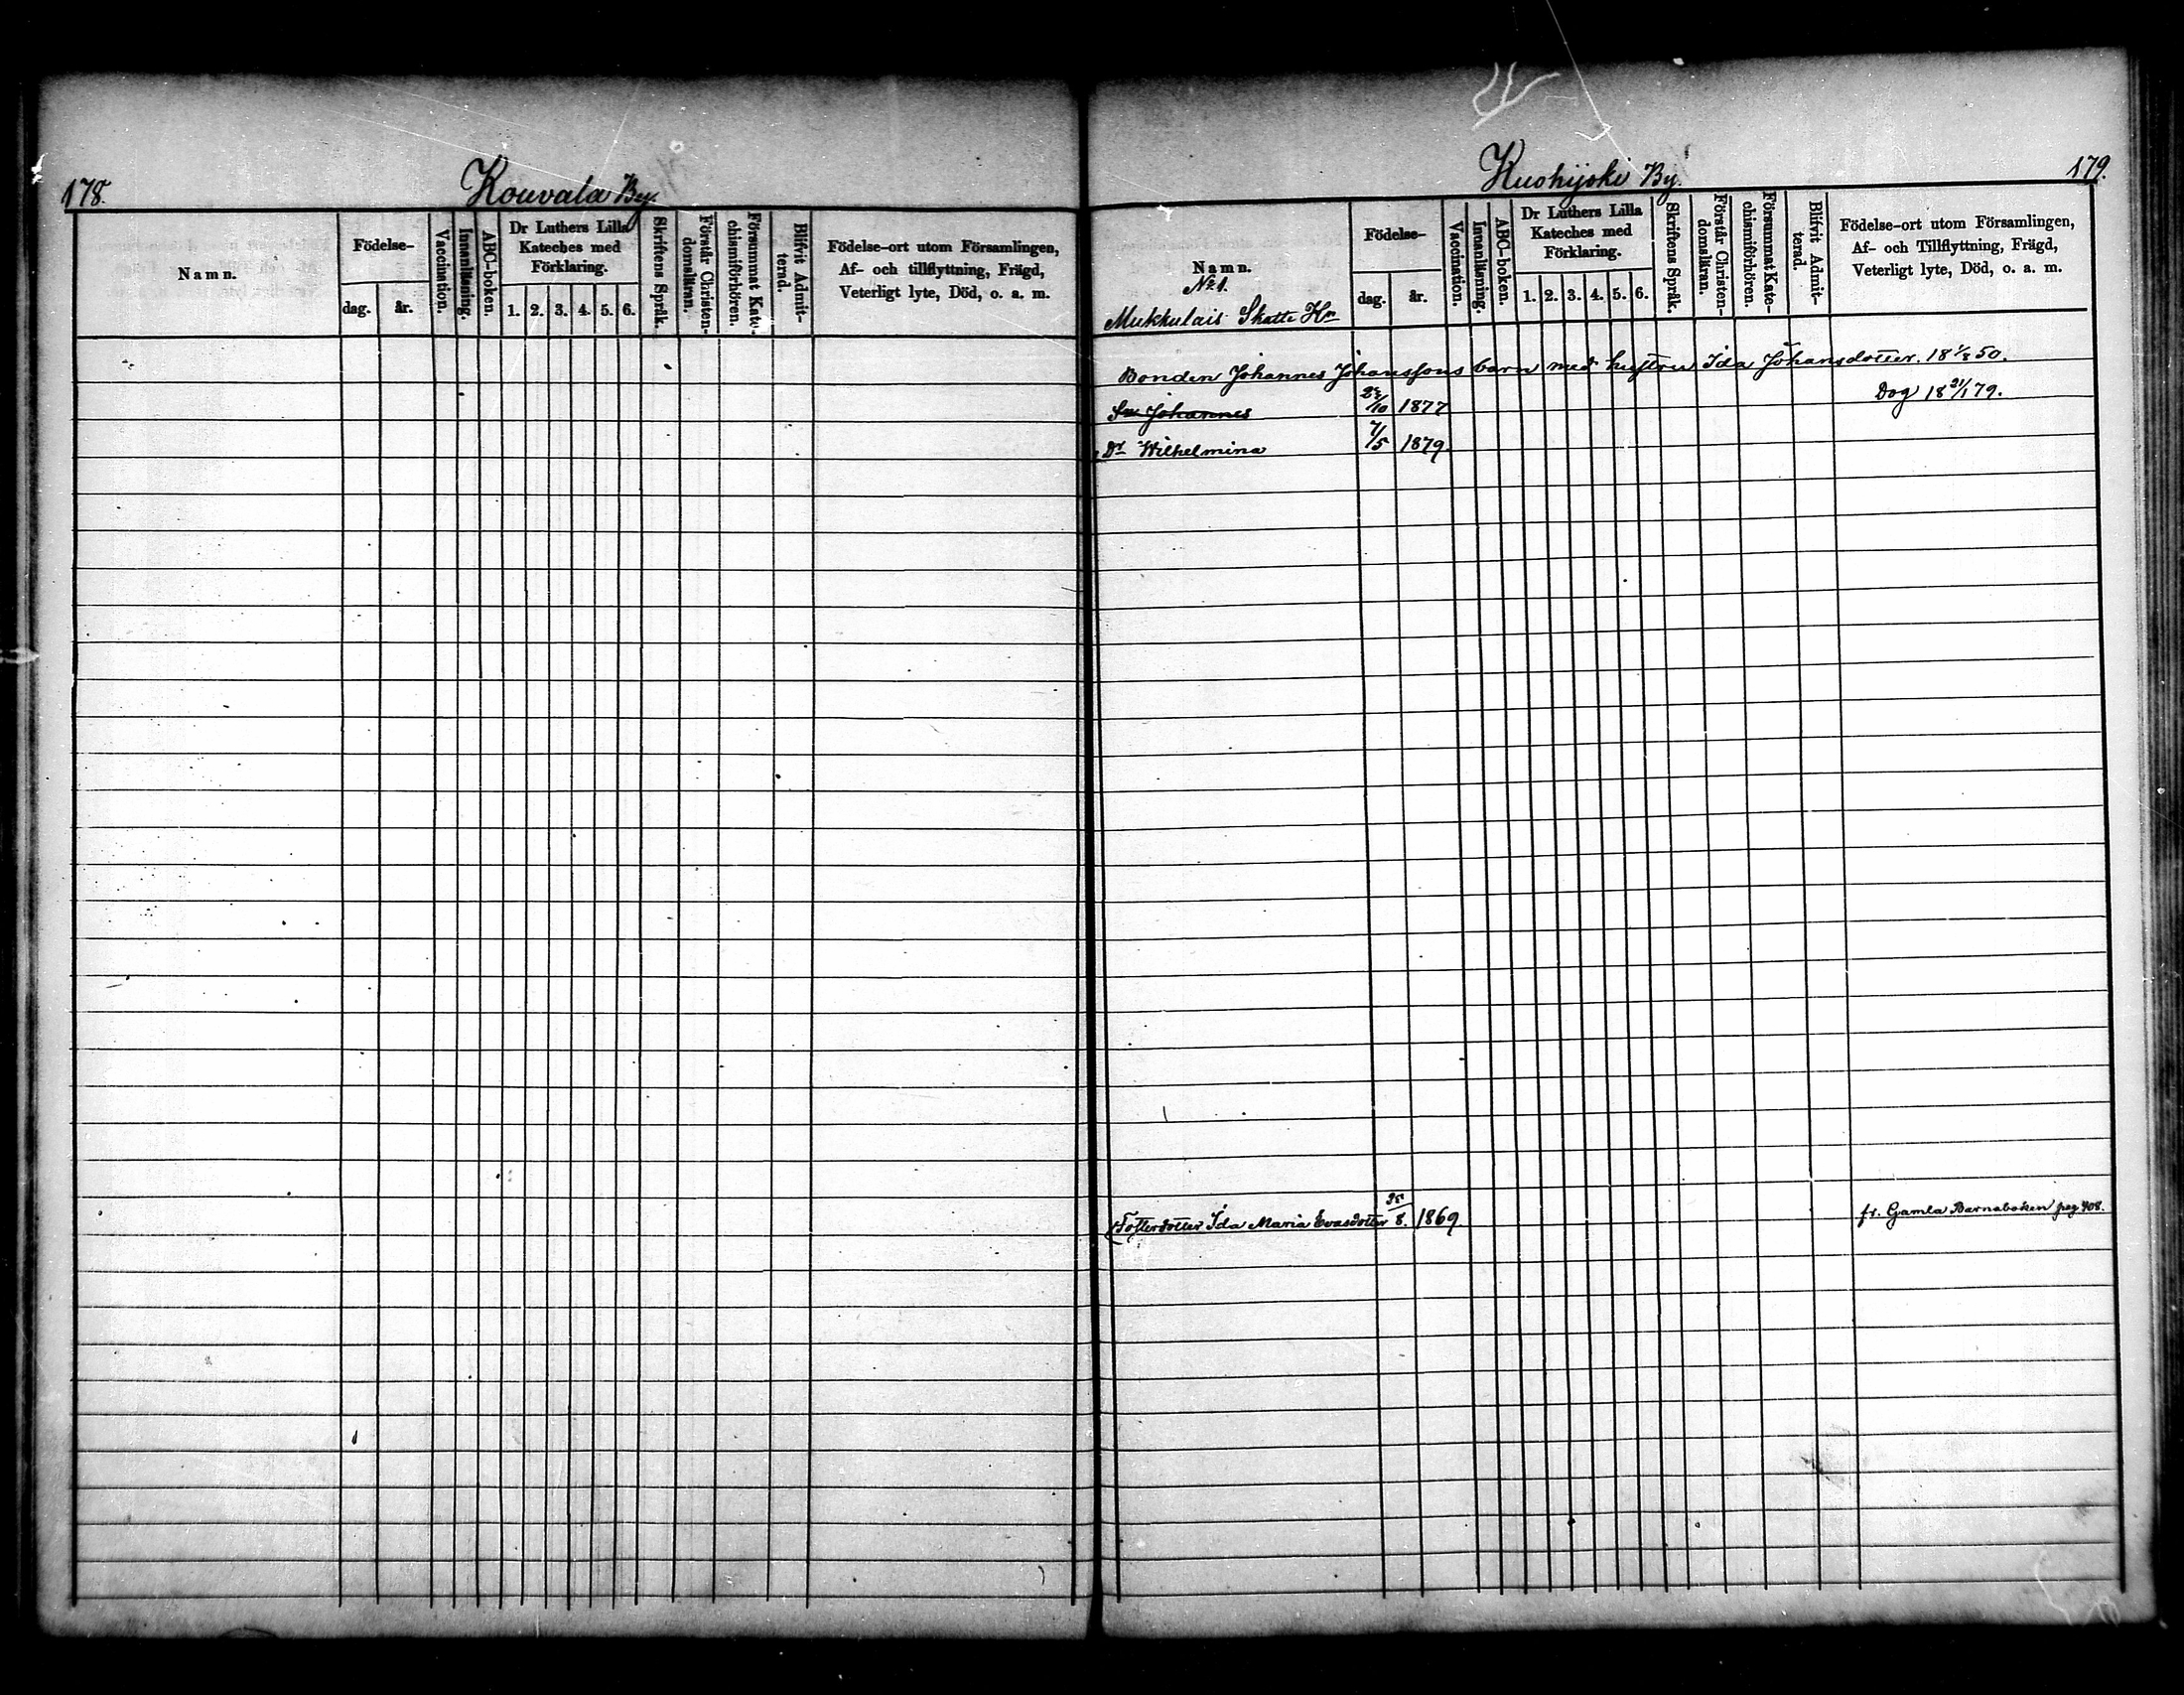 178.
Kouvala By.
Namn.
Födelse-
dag.
år.
Vaccination.
Innanläsning.
ABC-boken.
Dr Luthers Lilla
Kateches med
Förklaring.
1. 2. 3. 4. 5. 6.
Skriftens Språk.
Förstår Christen-
domsläran.
Försummat Kate-
chismiförhören.
Blifvit Admit-
terad.
Födelse-ort utom Församlingen,
Af- och tillflyttning, Frägd,
Veterligt lyte, Död, o. a. m.
Kuohijoki By.
179.
Namn.
No 1.
Mukkulais Skatte Hn
Födelse-
dag.
år.
Vaccination.
Innanläsning.
ABC-boken.
Dr Luthers Lilla
Kateches med
Förklaring.
1. 2. 3. 4. 5. 6.
Skriftens Språk.
Förstår Christen-
domsläran.
Försummat Kate-
chismiförhören.
Blifvit Admit-
terad.
Födelse-ort utom Församlingen,
Af- och Tillflyttning, Frägd,
Veterligt lyte, Död, o. a. m.
Bonden Johannes Johanssons barn med hustru Ida Johansdotter.
Sn Johannes /10 1877 Dog 18 21/1 79.
Dr Wilhelmina 7/5 1879.
Fosterdotter Ida Maria Evasdotter 25/8. 1869. fr. Gamla Barnaboken pag 408.